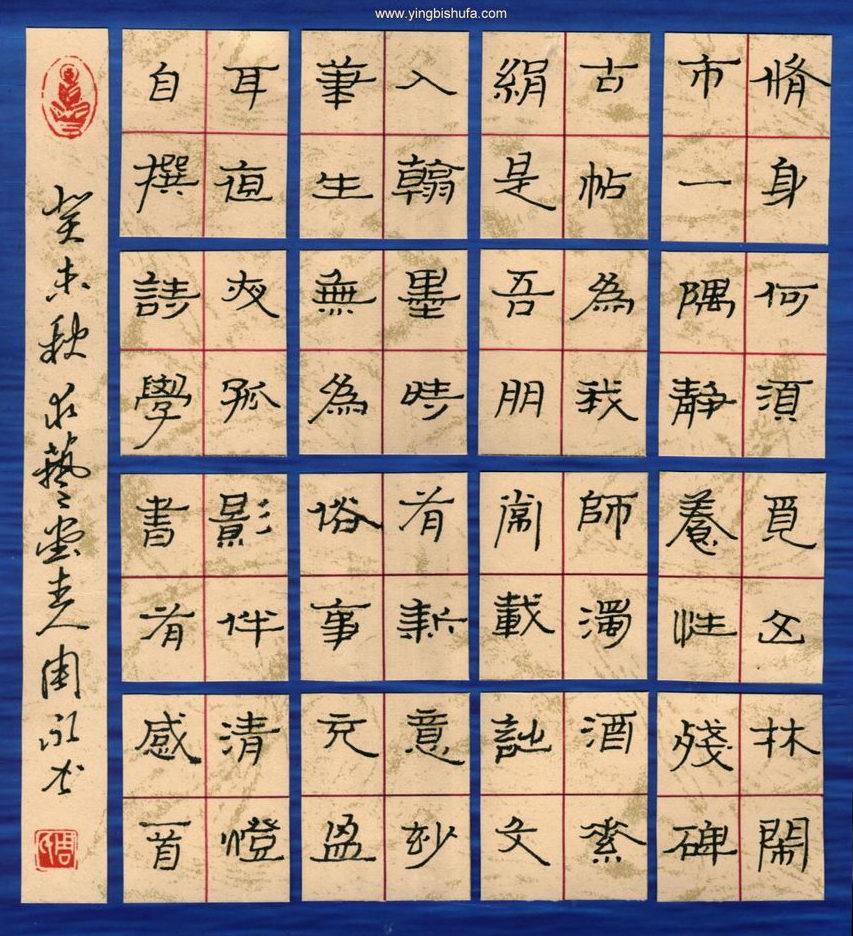 www.yingbishufa.com
脩身何須覓林鬧
市一隅靜養性殘碑
古帖為我師濁酒素
絹是吾朋常載文
入翰墨時有新意妙
筆生無為俗事充盈
耳直夜孤影伴清燈
自撰詩學書有感一首
癸未秋求藝堂主人周永